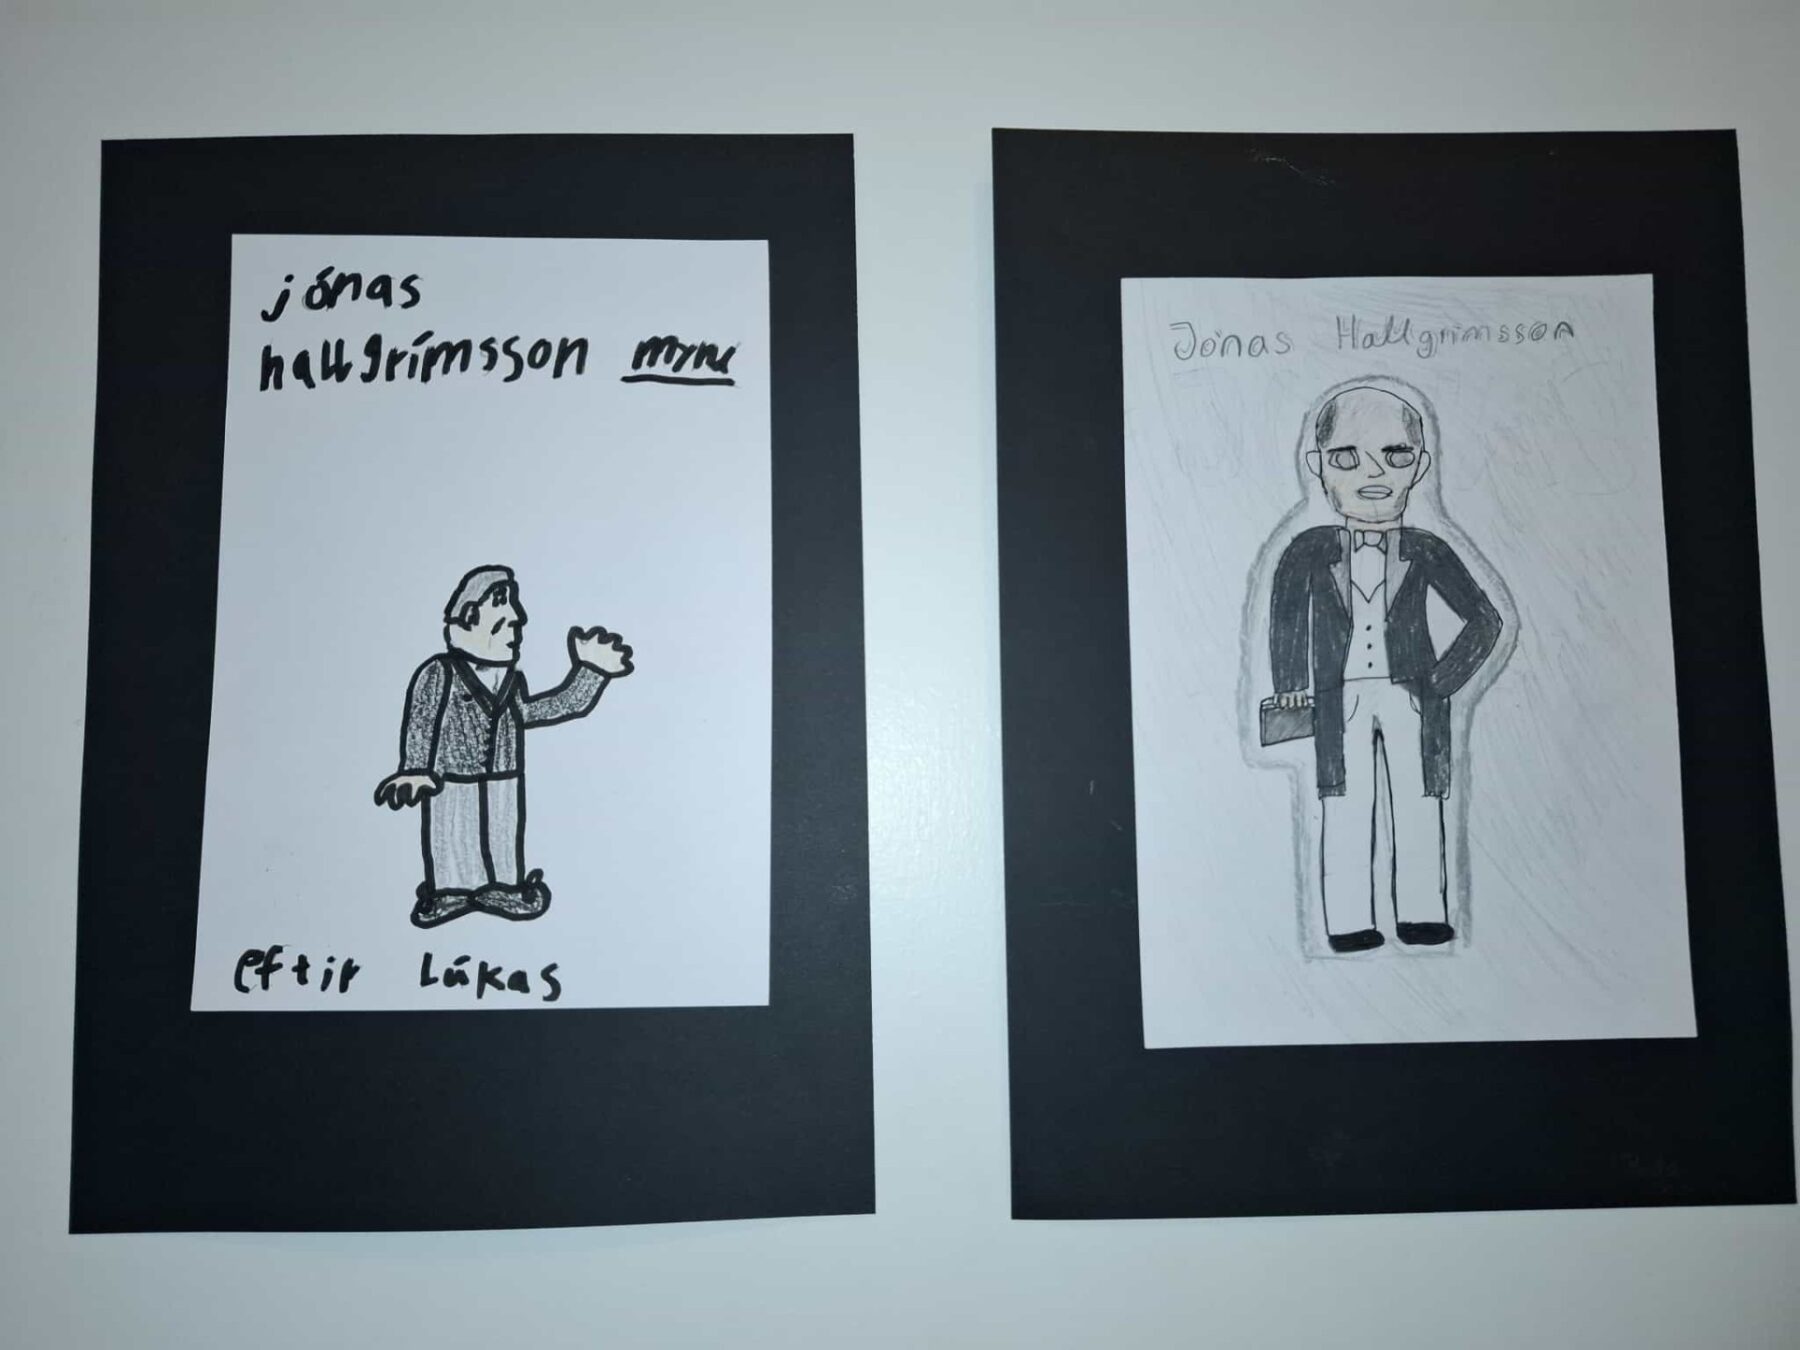 jónas
hallgrímsson mynd
eftir Lúkas
Jónas Hallgrímsson